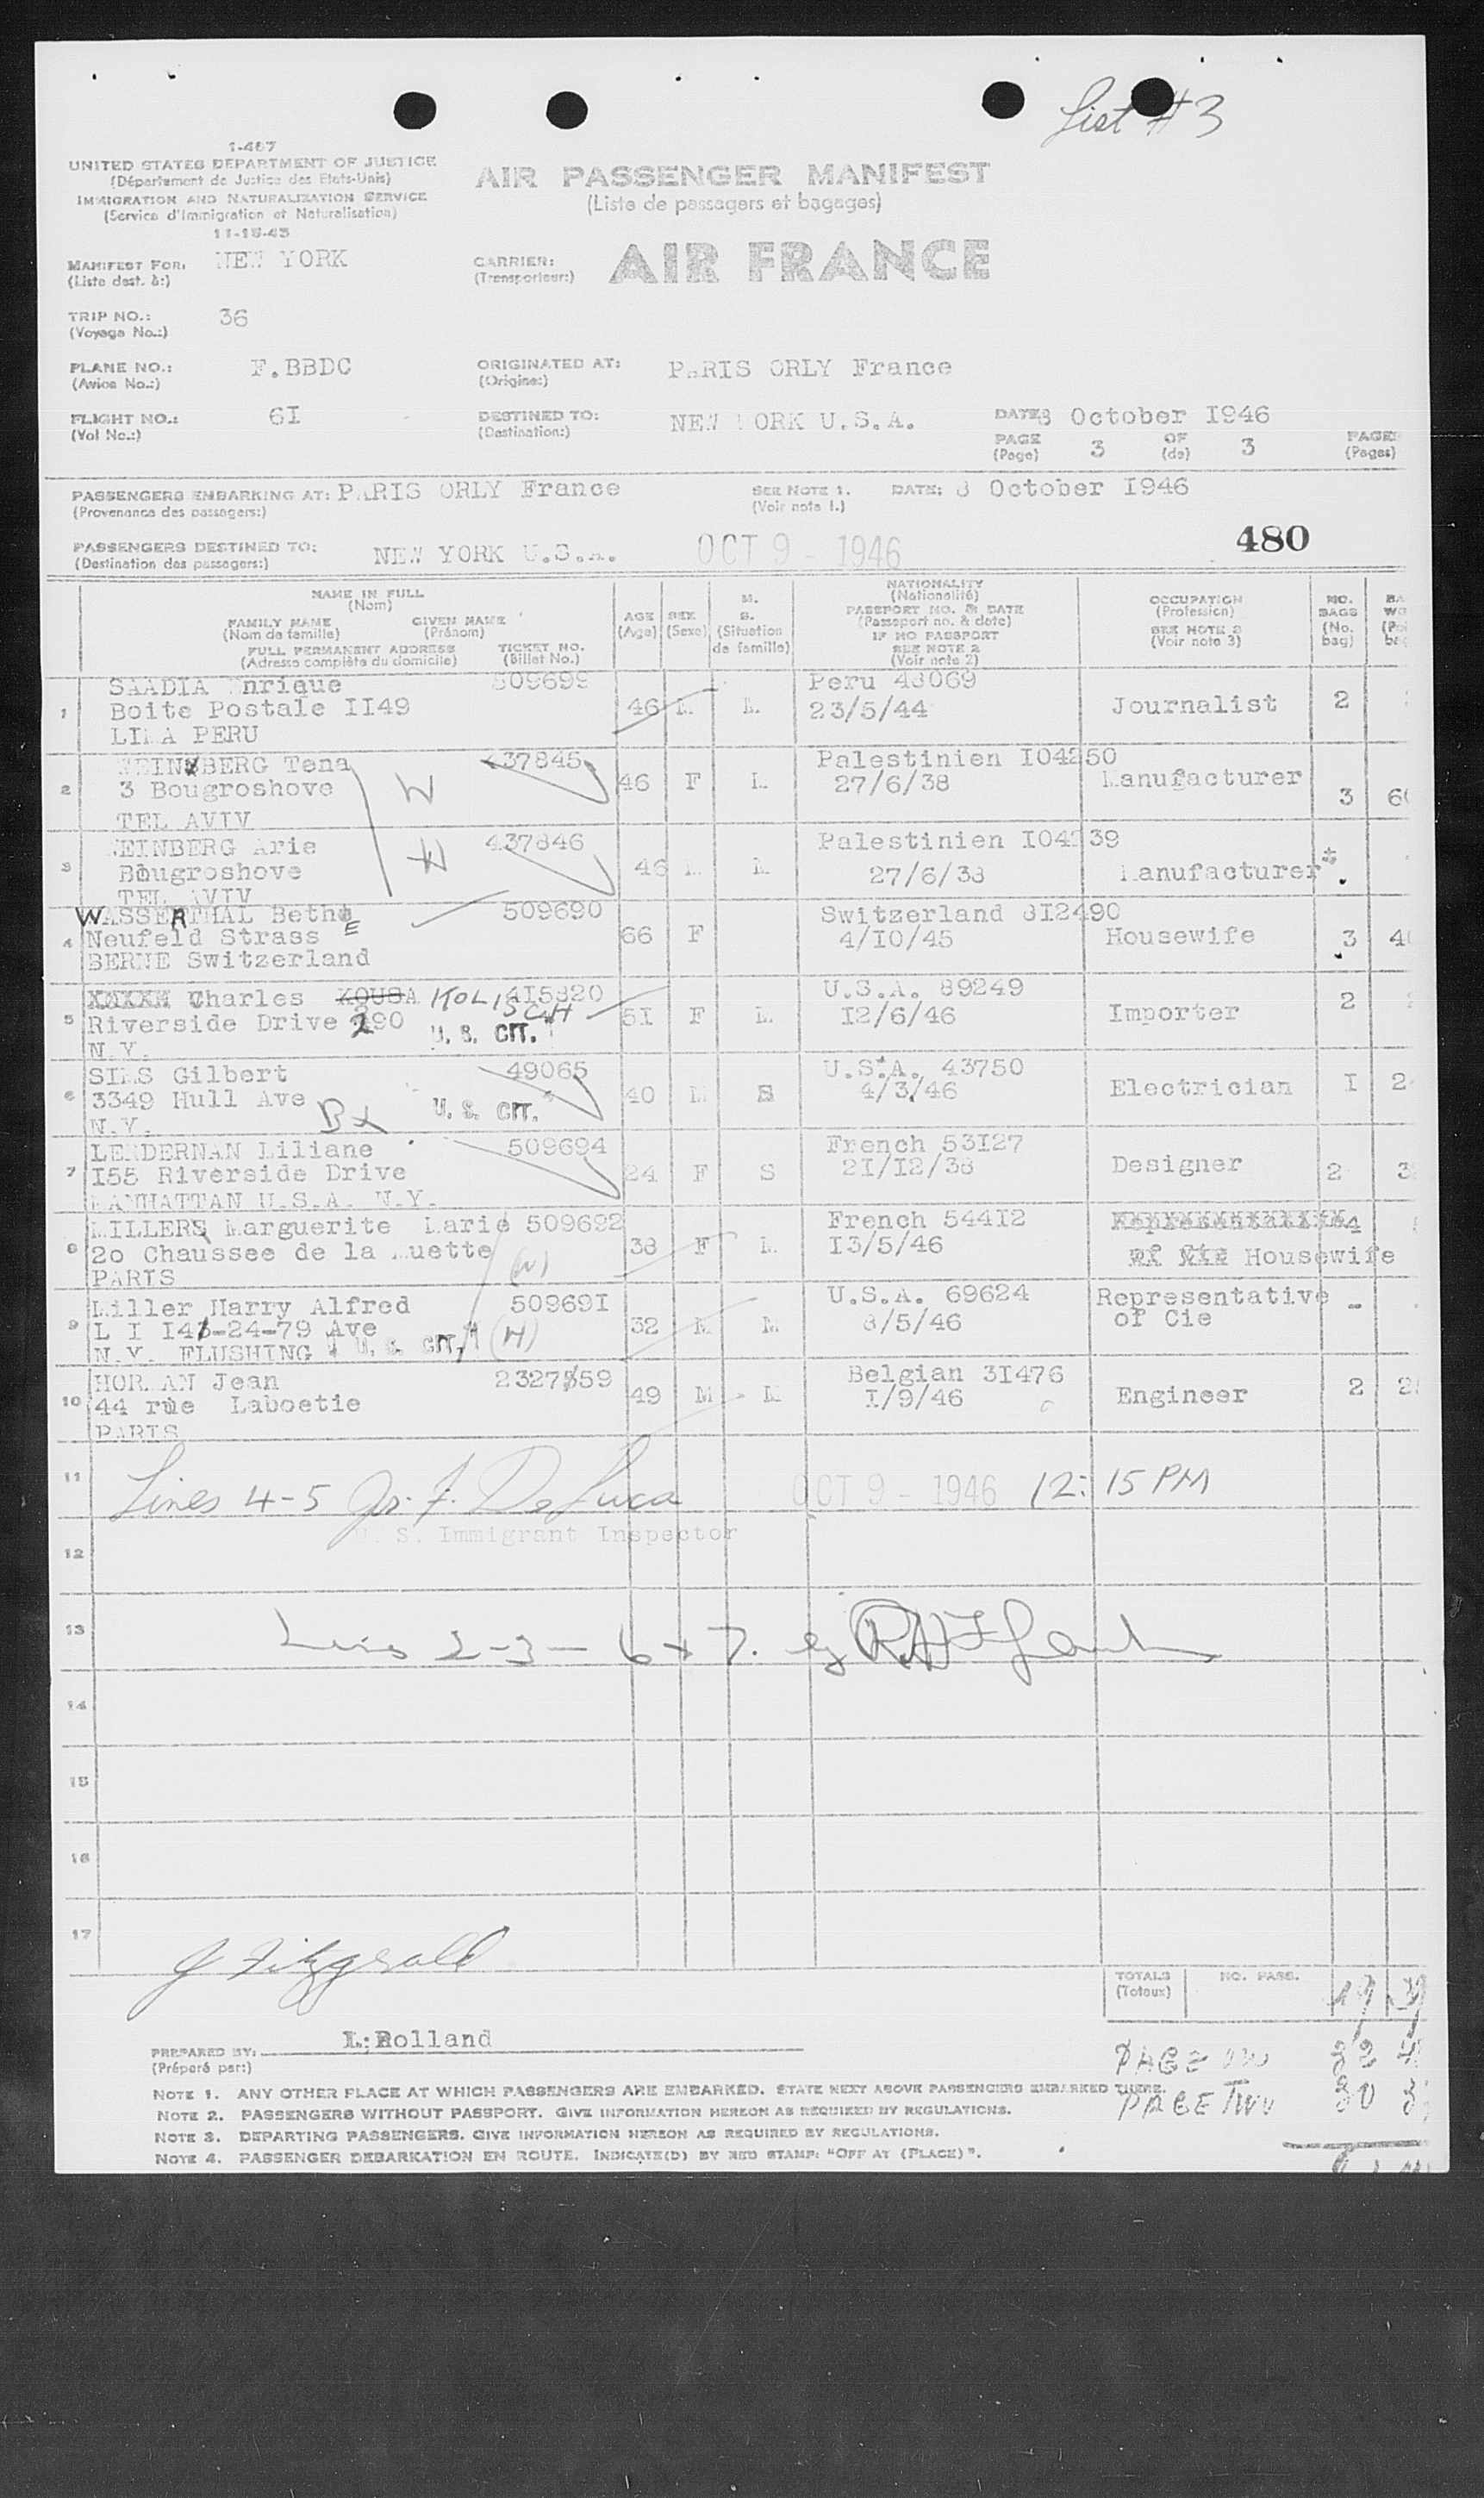 List # 3
1-467
UNITED STATES DEPARTMENT OF JUSTICE
(Département de Justice des Etats-Unis)
IMMIGRATION AND NATURALIZATION SERVICE
(Service d'Immigration et Naturalisation)
11-15-45
AIR PASSENGER MANIFEST
(Liste de passagers et bagages)
MANIFEST FOR: NEW YORK
(Liste dest. à:)
CARRIER: AIR FRANCE
(Transporteur:)
TRIP NO.: 36
(Voyage No.:)
PLANE NO.: F.BBDC
(Avion No.:)
ORIGINATED AT: PARIS ORLY France
(Origine:)
FLIGHT NO.: 6I
(Vol No.:)
DESTINED TO: NEW YORK U.S.A.
(Destination:)
DATE: 8 October I946
PAGE 3 OF 3 PAGES
(Page) (de) (Pages)
PASSENGERS EMBARKING AT: PARIS ORLY France SEE NOTE 1. DATE: 8 October I946
(Provenance des passagers:) (Voir note 1.)
480
PASSENGERS DESTINED TO: NEW YORK U.S.A. OCT 9 - 1946
(Destination des passagers:)
NAME IN FULL
(Nom)
FAMILY NAME GIVEN NAME
(Nom de famille) (Prénom)
FULL PERMANENT ADDRESS TICKET NO.
(Adresse complète du domicile) (Billet No.)
AGE
(Age)
SEX
(Sexe)
M.
S.
(Situation
de famille)
NATIONALITY
(Nationalité)
PASSPORT NO. & DATE
(Passeport no. & date)
IF NO PASSPORT
SEE NOTE 2
(Voir note 2)
OCCUPATION
(Profession)
SEE NOTE 3
(Voir note 3)
NO.
BAGS
(No.
bag)
1 SAADIA Enrique 509699 46 M M Peru 43069 Journalist 2
Boite Postale II49 23/5/44
LIMA PERU
2 WEINBERG Tena 437845 46 F M Palestinien I04250 Manufacturer 3
3 Bougroshove 27/6/38
TEL AVIV
W
3 WEINBERG Arie 437846 46 M M Palestinien I04239 Manufacturer
Bougroshove 27/6/38
TEL AVIV
H
4 WASSERTHAL Bethe 509690 66 F Switzerland 8I2490 Housewife 3
Neufeld Strass 4/I0/45
BERNE Switzerland
5 Charles KOUSA KOLISCH 4I5820 5I F M U.S.A. 89249 Importer 2
Riverside Drive 290 U. S. CIT. I2/6/46
N.Y.
6 SIMS Gilbert 49065 40 M S U.S.A. 43750 Electrician I
3349 Hull Ave Bx U. S. CIT. 4/3/46
N.Y.
7 LENDERNAN Liliane 509694 24 F S French 53I27 Designer 2
I55 Riverside Drive 2I/I2/38
MANHATTAN U.S.A. N.Y.
8 MILLERS Marguerite Marie 509692 38 F M French 544I2
2o Chaussee de la Muette (W) I3/5/46 Housewife
PARIS
9 Miller Harry Alfred 50969I 32 M M U.S.A. 69624 Representative -
L I I46-24-79 Ave (H) 8/5/46 of Cie
N.Y. FLUSHING U. S. CIT.
10 HORMAN Jean 2327559 49 M M Belgian 3I476 Engineer 2
44 rue Laboetie I/9/46
PARIS
11 Lines 4-5 Jos. F. DeLuca OCT 9 - 1946 12:15 PM
U. S. Immigrant Inspector
12
13 Lines 2-3-6+7. by
14
15
16
17
J Fitzgerald
TOTALS NO. PASS.
(Totaux)
PREPARED BY: L;Rolland
(Préparé par:)
PAGE ONE 22
PAGE TWO 20
NOTE 1. ANY OTHER PLACE AT WHICH PASSENGERS ARE EMBARKED. STATE NEXT ABOVE PASSENGERS EMBARKED THERE.
NOTE 2. PASSENGERS WITHOUT PASSPORT. GIVE INFORMATION HEREON AS REQUIRED BY REGULATIONS.
NOTE 3. DEPARTING PASSENGERS. GIVE INFORMATION HEREON AS REQUIRED BY REGULATIONS.
NOTE 4. PASSENGER DEBARKATION EN ROUTE. INDICATE(D) BY RED STAMP: "OFF AT (PLACE)".